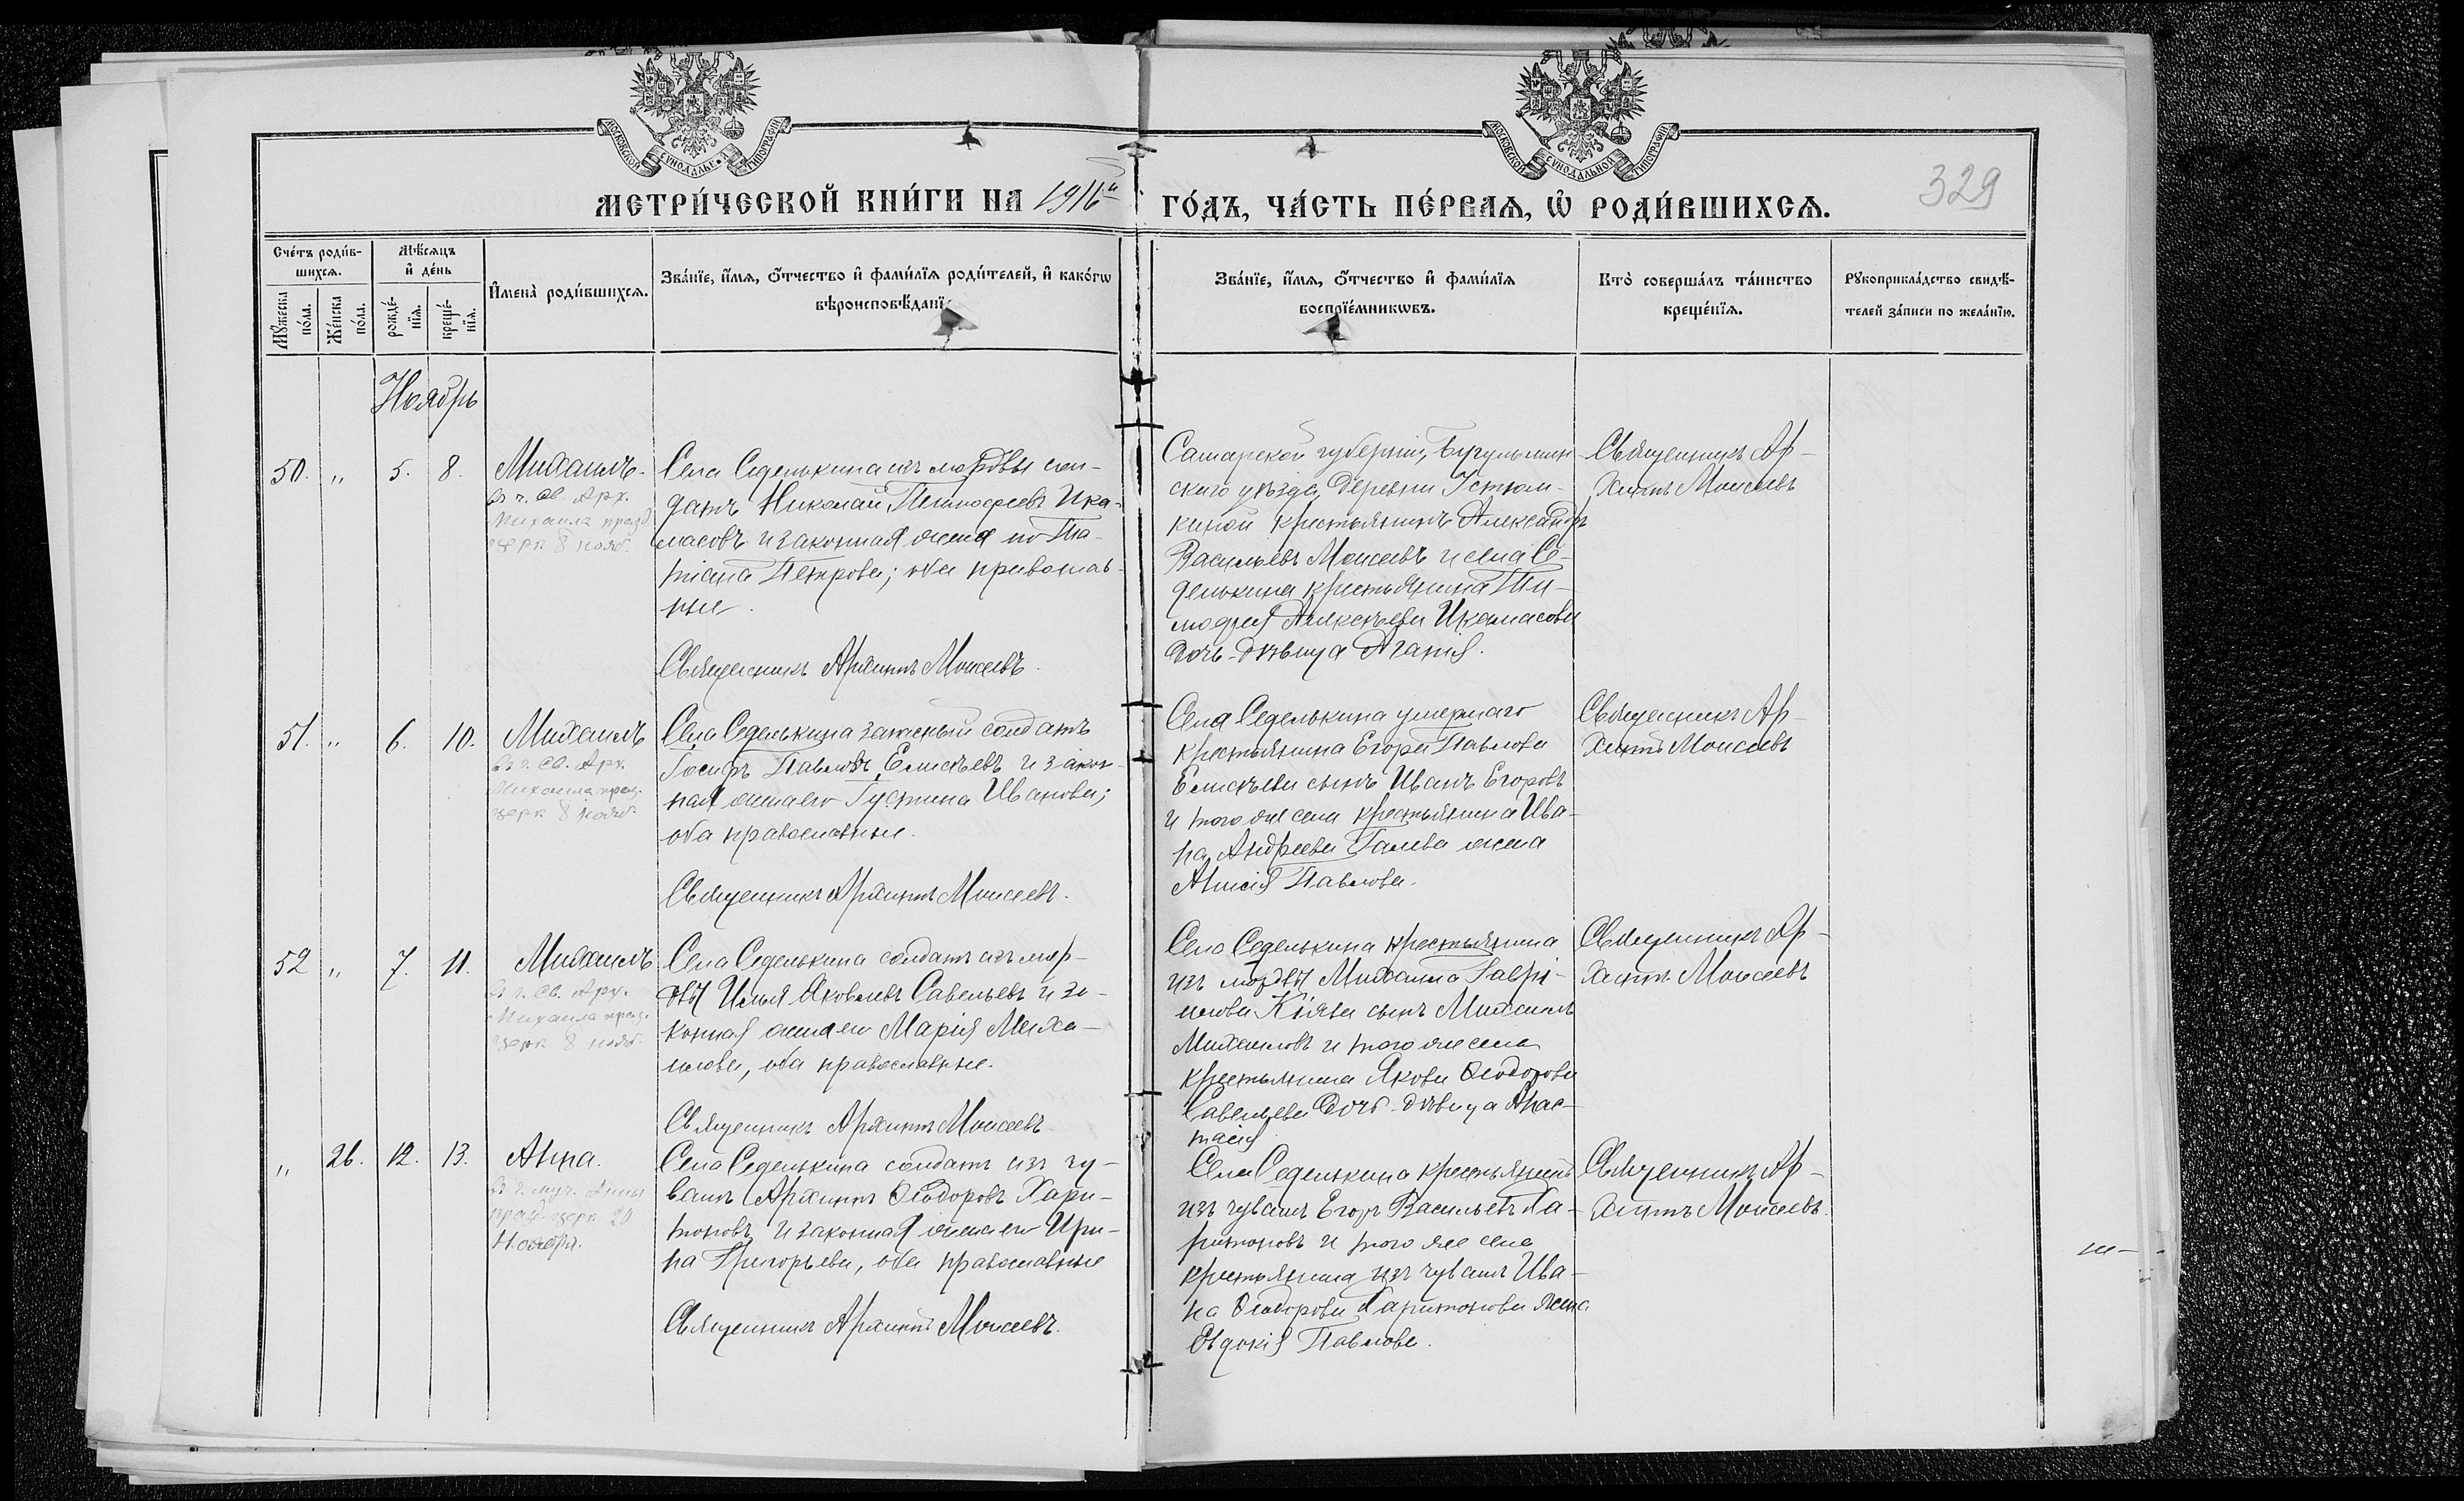 МЕТРИ́ЧЕСКОЙ КНИ́ГИ НА 1916й ГО́ДЪ, ЧА́СТЬ ПЕ́РВАЯ, Ѡ҆ РОДИ́ВШИХСЯ.
329
МОСКОВСКОЙ СѴНОДАЛЬНОЙ ТИПОГРАФІИ
МОСКОВСКОЙ СѴНОДАЛЬНОЙ ТИПОГРАФІИ
Сче́тъ роди́в-
шихся.
Мѣ́сяцъ
и҆ де́нь
Мꙋ́жеска
по́ла.
Же́нска
по́ла.
рожде́-
нїя.
креще́-
нїя.
И҆мена̀ роди́вшихся.
Зва́нїе, и҆́мя, ѻ҆́тчество и҆ фами́лїя роди́телей, и҆ како́гѡ
вѣроисповѣ́данї
Зва́нїе, и҆́мя, ѻ҆́тчество и҆ фами́лїя
воспрїе́мникѡвъ.
Кто̀ соверша́лъ та́инство
креще́нїя.
Рꙋкоприкла́дство свидѣ́-
телей за́писи по жела́нїю.
Ноябрь
50. " 5. 8. Михаилъ.
въ ч. Св. Арх.
Михаила празд
церк. 8 нояб.
Села Седелькина изъ мордвы сол-
датъ Николай Тимофеевъ Ика-
масовъ и законная жена его Та-
тіана Петрова; оба православ-
ные.
Священникъ Архиппъ Моисеевъ.
Самарской губерніи, Бугульмин-
скаго уѣзда, деревни Устюм-
киной крестьянинъ Александръ
Васильевъ Моисеевъ и села Се-
делькина крестьянина Ти-
мофея Алексѣева Икамасова
дочь-дѣвица Агапія.
Священникъ Ар-
хиппъ Моисеевъ
51. " 6. 10. Михаилъ
въ ч. Св. Арх.
Михаила праз.
церк. 8 нояб.
Села Седелькина запасный солдатъ
Іосифъ Павловъ Елисѣевъ и закон-
ная жена его Іустина Иванова;
оба православные.
Священникъ Архиппъ Моисеевъ.
Села Седелькина умершаго
крестьянина Егора Павлова
Елисѣева сынъ Иванъ Егоровъ
и того же села крестьянина Ива-
на Андреева жена
Анисія Павлова.
Священникъ Ар-
хиппъ Моисеевъ
52 " 7. 11. Михаилъ
въ ч. Св. Арх.
Михаила праз.
церк. 8 нояб.
Села Седелькина солдатъ изъ мор-
двы Илья Яковлевъ Савельевъ и за-
конная жена его Марія Миха-
илова, оба православные.
Священникъ Архиппъ Моисеевъ.
Села Седелькина крестьянина
изъ мордвы Михаила Гаврі-
илова Князева сынъ Михаилъ
Михаиловъ и того же села
крестьянина Якова Ѳеодорова
Савельева дочь-дѣвица Анас-
тасія
Священникъ Ар-
хиппъ Моисеевъ
" 26. 12. 13. Анна.
въ ч. муч. Анны
празд. церк. 20
Ноября.
Села Седелькина солдатъ изъ чу-
вашъ Архиппъ Ѳеодоровъ Хари-
тоновъ и законная жена его Ири-
на Григорьева, оба православные
Священникъ Архиппъ Моисеевъ.
Села Седелькина крестьянинъ
изъ чувашъ Егоръ Васильевъ Ха-
ритоновъ и того же села
крестьянина изъ чувашъ Ива-
на Ѳеодорова Харитонова жена
Евдокія Павлова.
Священникъ Ар-
хиппъ Моисеевъ.